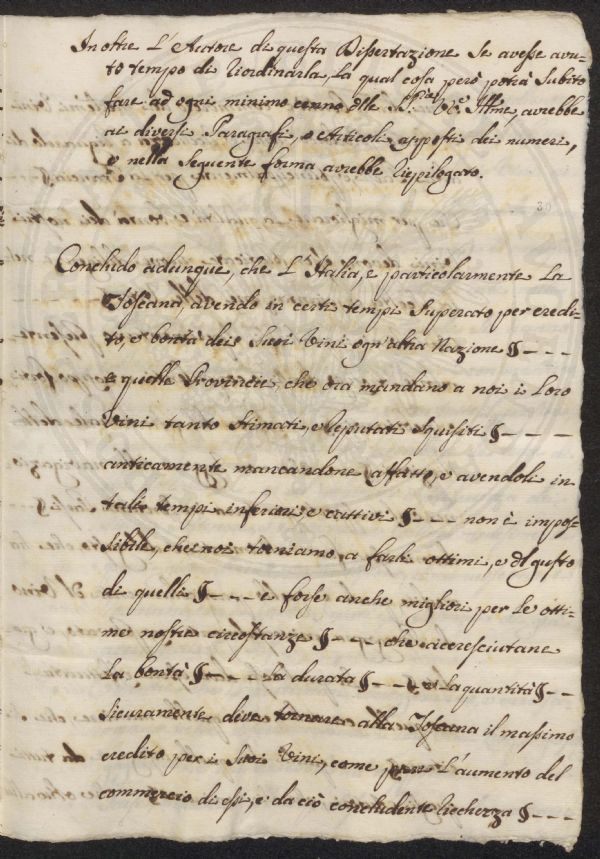 In oltre l'Autore di questa Dissertazione se avesse avu-
to tempo di riordinarla, la qual cosa però potrà subito
fare ad ogni minimo cenno dlle Illme, avrebbe
ai diversi Paragrafi, o Articoli apposti dei numeri,
e nella seguente forma avrebbe riepilogato.
30
Conchido adunque, che l'Italia, e particolarmente la
Toscana, avendo in certi tempi superato per credi-
to, e bontà dei suoi vini ogn'altra Nazione §---
e quelle Provincie, che ora mandano a noi i loro
vini tanto stimati, e reputati squisiti §----
anticamente mancandone affatto, e avendoli in
tali tempi inferiori e cattivi §--- non è impos-
sibile, che noi torniamo a farli ottimi, e dl gusto
di quelli §--- e forse anche migliori per le otti-
me nostre circostanze §--- che accresciutane
la bontà §--- la durata §--- e la quantità §--
sicuramente deve tornare alla Toscana il massimo
credito per i suoi vini, come pure l'aumento del
commercio di essi, e da ciò concludente ricchezza §---